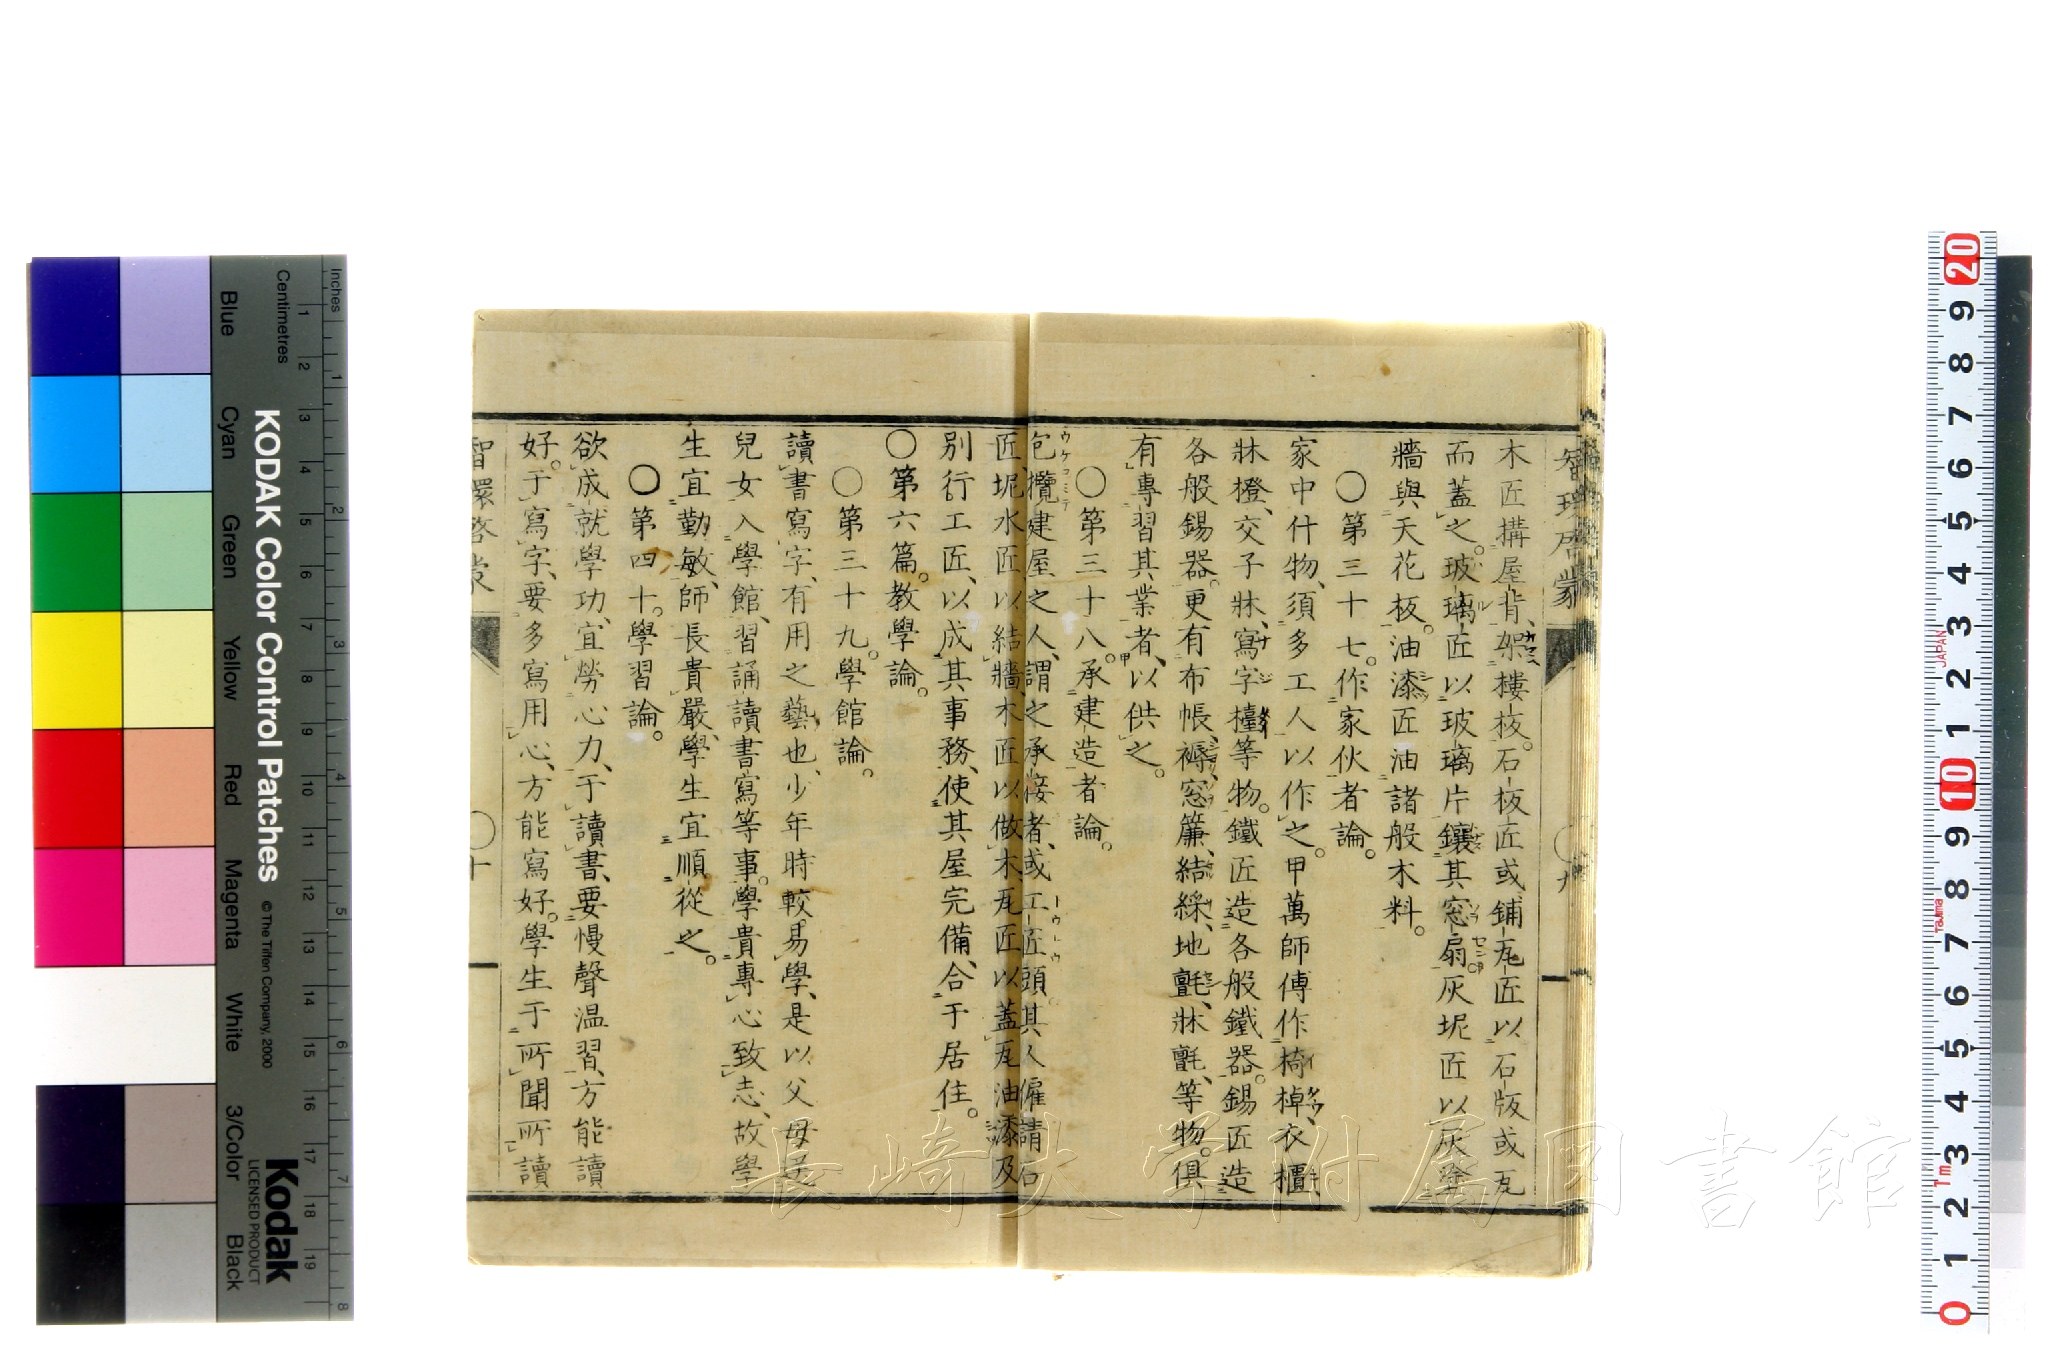 智環啓蒙
〇九
木匠搆屋背、架樓板。石板匠或鋪瓦匠以石版或瓦
而蓋之。玻璃匠以玻璃片鑲其窓扇灰坭匠以灰塗
牆與天花板。油漆匠油諸般木料。
〇第三十七。作家伙者論。
家中什物、須多工人以作之。甲萬師傅作椅棹、衣櫃、
牀櫈、交子牀、寫字檯等物。鐵匠造各般鐵器。錫匠造
各般錫器。更有布帳、褥、窓簾、結綵、地氊、牀氊、等物。俱
有專習其業者、以供之。
〇第三十八。承建造者論。
包攬建屋之人、謂之承接者、或工匠頭。其人僱請石
匠坭水匠以結牆、木匠以做木、瓦匠以蓋瓦油漆及
別行工匠、以成其事務、使其屋完備、合于居住。
〇第六篇。教學論。
〇第三十九。學館論。
讀書寫字、有用之藝也、少年時較易學、是以父母送
兒女入學館、習誦讀書寫等事。學貴專心致志、故學
生宜勤敏、師長貴嚴、學生宜順從之。
〇第四十。學習論。
欲成就學功、宜勞心力、于讀書、要慢聲温習、方能讀
好。于寫字、要多寫用心、方能寫好。學生于所聞所讀
智環啓蒙
〇十
長崎大学附属図書館
KODAK Color Control Patches
© The Tiffen Company, 2000
Kodak
LICENSED PRODUCT
Inches
Centimetres
Blue
Cyan
Green
Yellow
Red
Magenta
White
3/Color
Black
1 2 3 4 5 6 7 8 9 10 11 12 13 14 15 16 17 18 19
1 2 3 4 5 6 7 8
20 9 8 7 6 5 4 3 2 1 10 9 8 7 6 5 4 3 2 1 0
JAPAN
Tajima
Tm